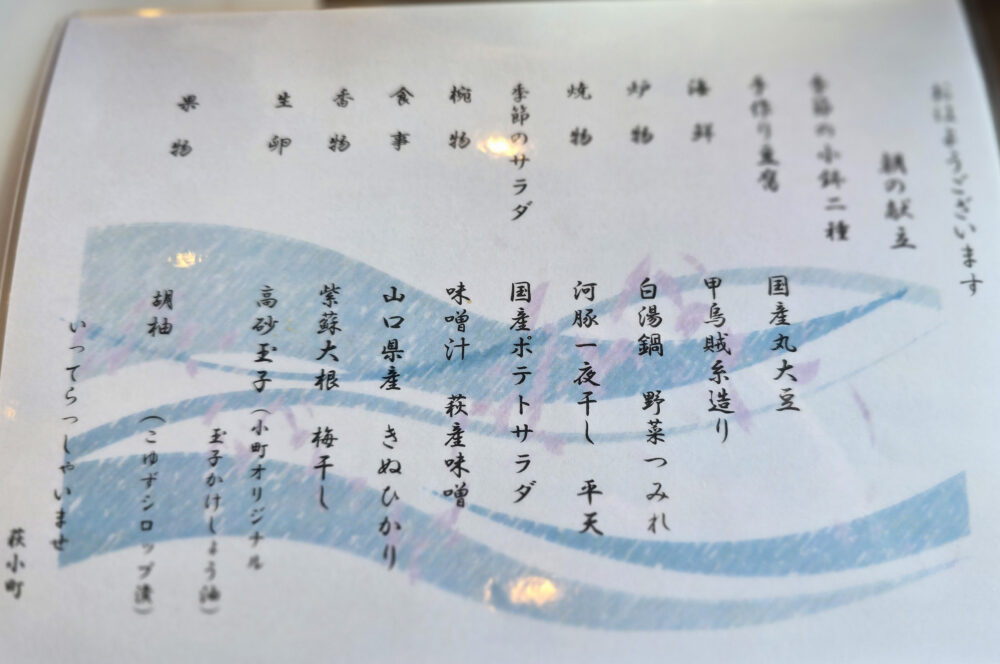 おはようございます
朝の献立
季節の小鉢二種
手作り豆腐 国産丸大豆
海鮮 甲烏賊糸造り
炉物 白湯鍋 野菜つみれ
焼物 河豚一夜干し 平天
季節のサラダ 国産ポテトサラダ
椀物 味噌汁 萩産味噌
食事 山口県産 きぬひかり
香物 紫蘇大根 梅干し
生卵 高砂玉子(小町オリジナル
玉子かけしょう油)
果物 胡柚 (こゆずシロップ漬)
いってらっしゃいませ
萩小町